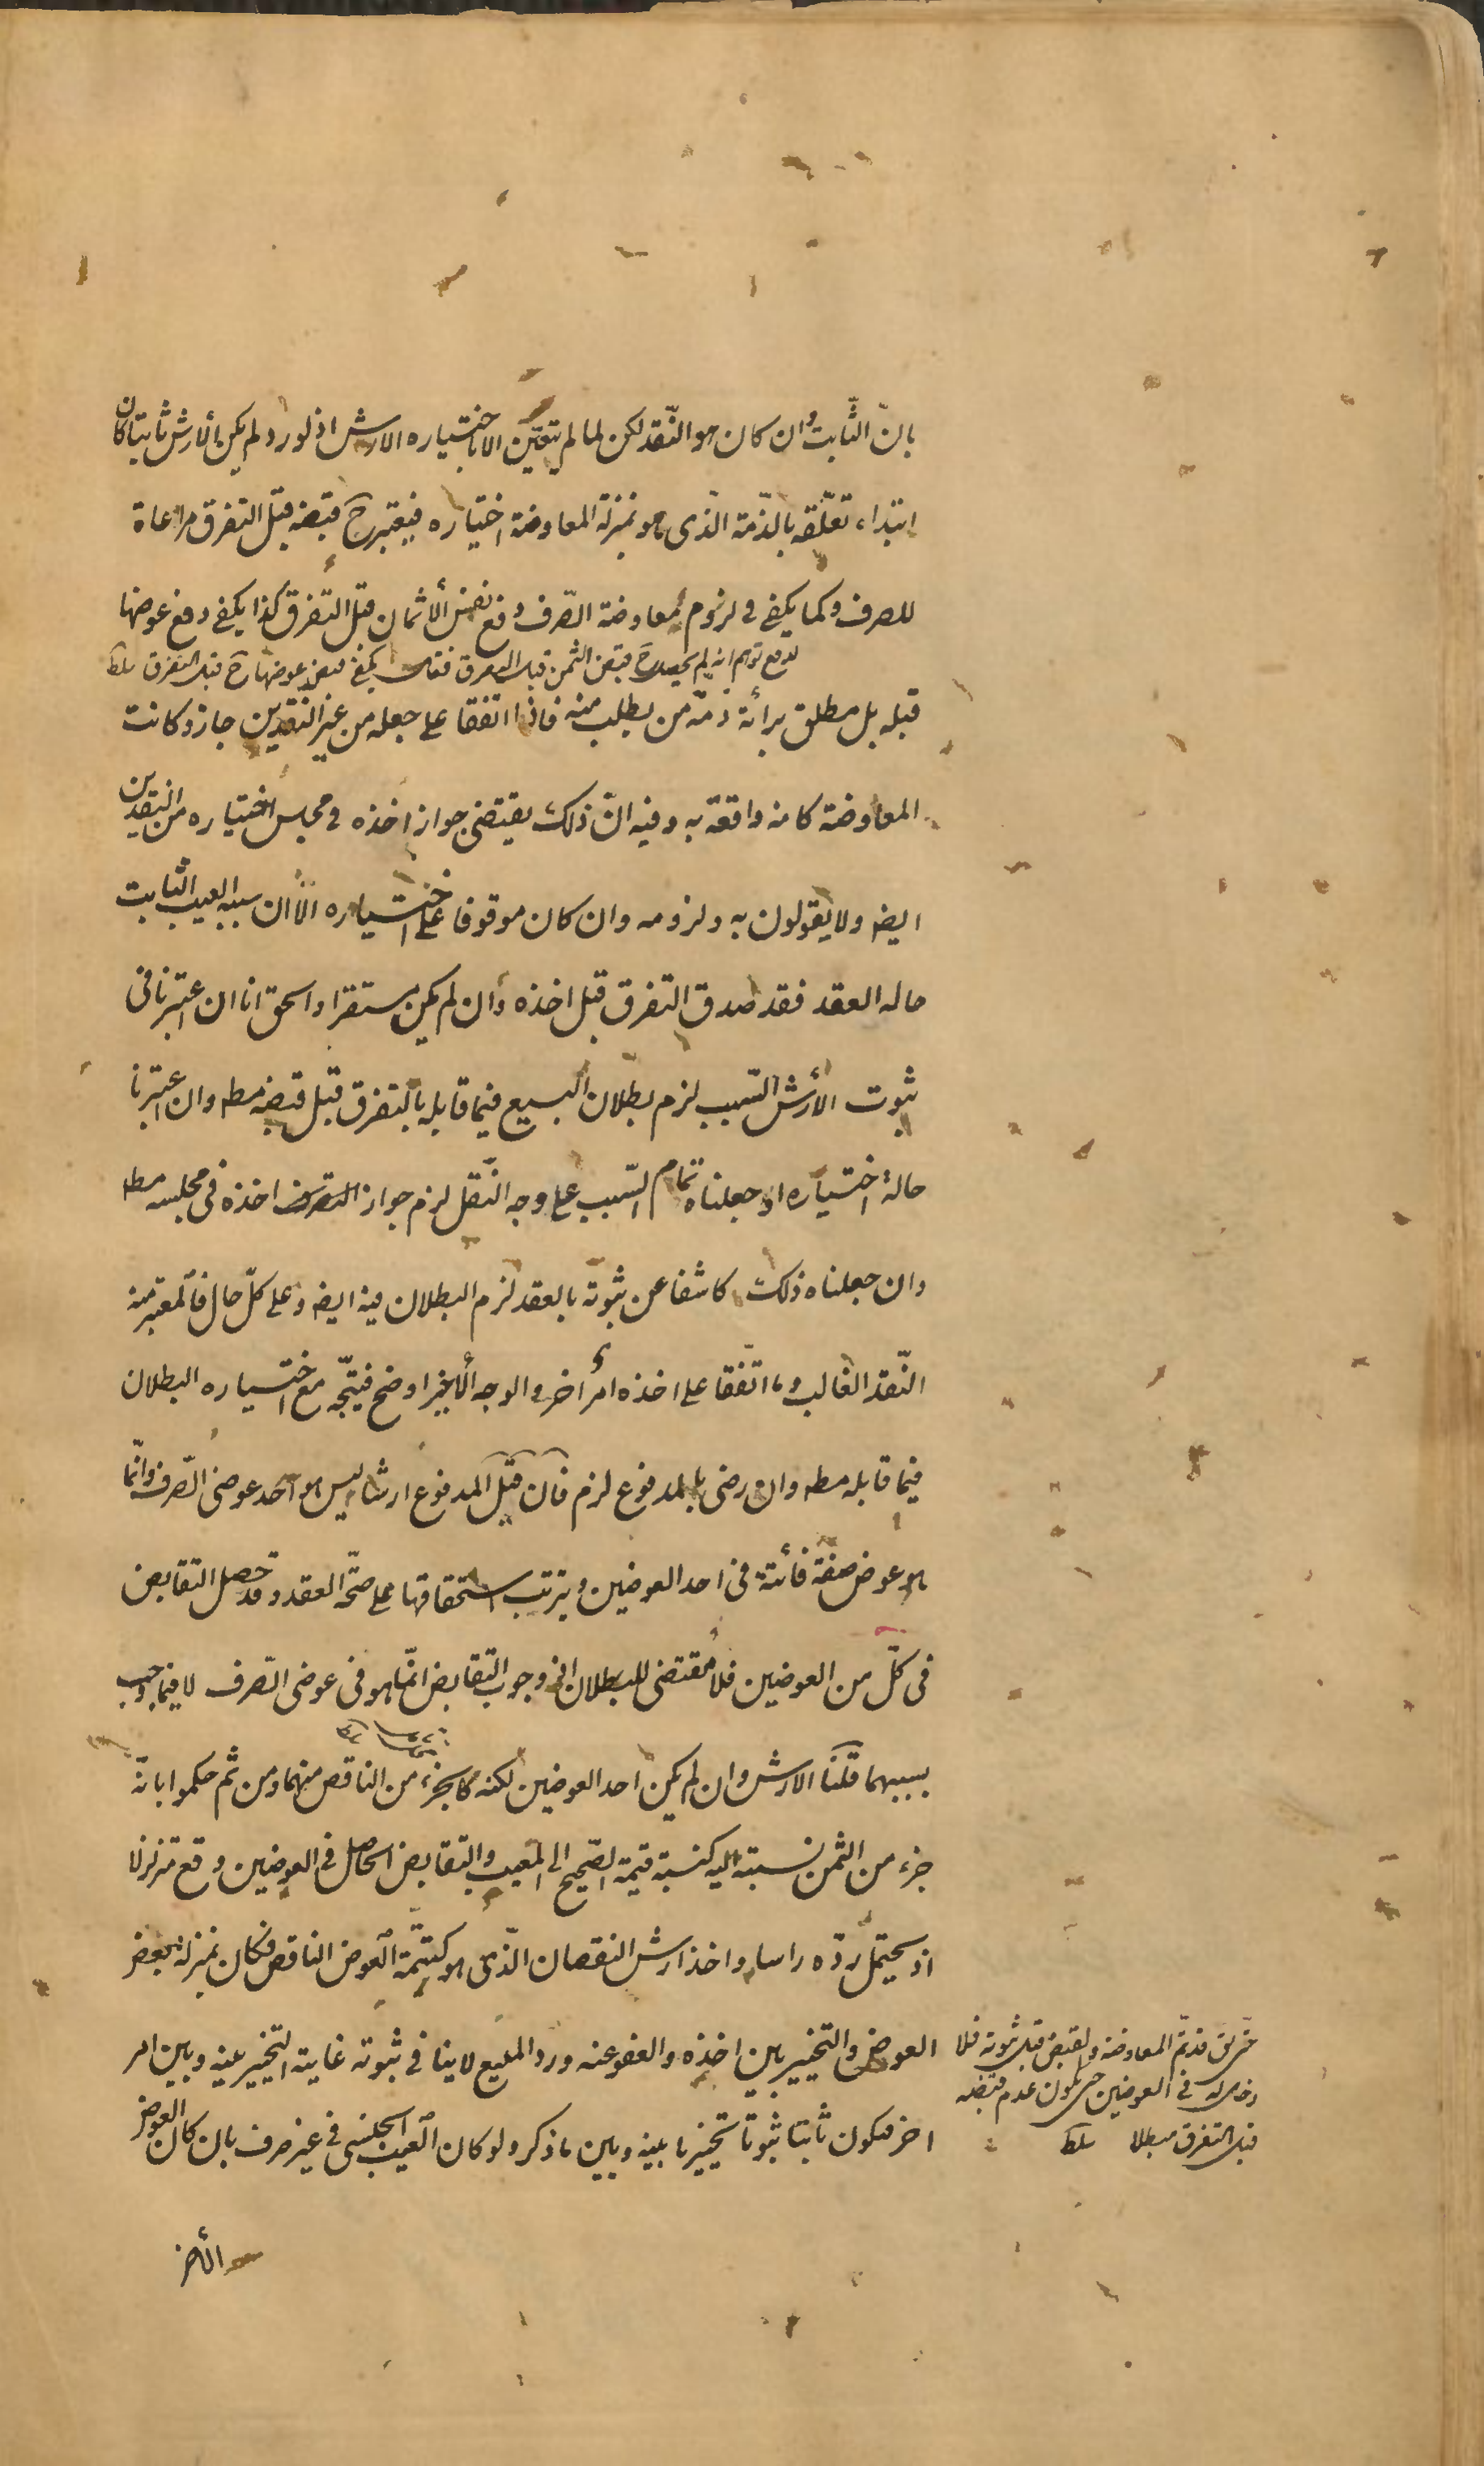 بانّ الثّابت وان كان هو النّقد لكن لما لم يتعيّن الا باختياره الارش اذ لو رد لم يكن الأرش ثابتا كان
ابتداء تعلّقه بالذّمة الّذى هو بمنزلة المعاوضة اختياره فيعتبر ح قبضه قبل التفرق مراعاة
للصرف وكما يكفى فى لزوم معاوضة الصّرف دفع نفس الأثمان قبل التّفرق كذا يكفى دفع عوضها
لدفع توهم انه لم يحصل ح قبض الثمن قبل التفرق فقال يكفى قبض عوضها ح قبل التفرق سلطا
قبله بل مطلق برائة ذمّة من يطلب منه فاذا اتفقا على جعله من غير النّقدين جاز وكانت
المعاوضة كانه واقعة به وفيه انّ ذلك يقتضى جواز اخذه فى مجلس اختياره من النقدين
ايضا ولا يقولون به ولزومه وان كان موقوفا على اختياره الّا ان سببه العيب الثابت
حاله العقد فقد صدق التفرق قبل اخذه وان لم يكن مستقرا والحق انا ان اعتبرنا فى
ثبوت الأرش السّبب لزم بطلان البيع فيما قابله بالتفرق قبل قبضه مطه وان اعتبرنا
حالة اختياره او جعلناه تمام السّبب على وجه النّقل لزم جواز اخذه فى مجلسه مطه
وان جعلناه ذلك كاشفا عن ثبوته بالعقد لزم البطلان فيه ايضا وعلى كلّ حال فالمعتبر منه
النّقد الغالب وما اتّفقا على اخذه امر آخر والوجه الأخير اوضح فيتّجه مع اختياره البطلان
فيما قابله مطه وان رضى بالمدفوع لزم فان قيل المدفوع ارشا ليس هو احد عوضى الصّرف وانّما
هو عوض صفة فائتة فى احد العوضين ويترتب استحقاقها على صحّة العقد وقد حصل التقابض
فى كلّ من العوضين فلا مقتضى للبطلان اذ وجوب التّقابض انّما هو فى عوضى الصّرف لا فيما وجب
بسببهما قلنا الارش وان لم يكن احد العوضين لكنه كالجزء من الناقص منهما ومن ثم حكموا بانّه
جزء من الثمن نسبته اليه كنسبة قيمة الصّحيح الى المعيب والتقابض الحاصل فى العوضين وقع متزلزلا
اذ يحتمل ردّه راسا واخذ ارش النقصان الّذى هو كتتمّة العوض الناقص فكان بمنزلة بعض
العوض والتخيير بين اخذه والعفو عنه ورد المبيع لا ينافى ثبوته غايته التّخيير بينه وبين امر
اخر فيكون ثابتا ثبوتا تخييريا بينه وبين ما ذكر ولو كان العيب الجنسى فى غير صرف بان كان العوض
حتى قد تم المعاوضة والقبض قبل ثبوته فلا
دخل له فى العوضين حتى يكون عدم قبضه
قبل التفرق مبطلا سلطا
الأخر